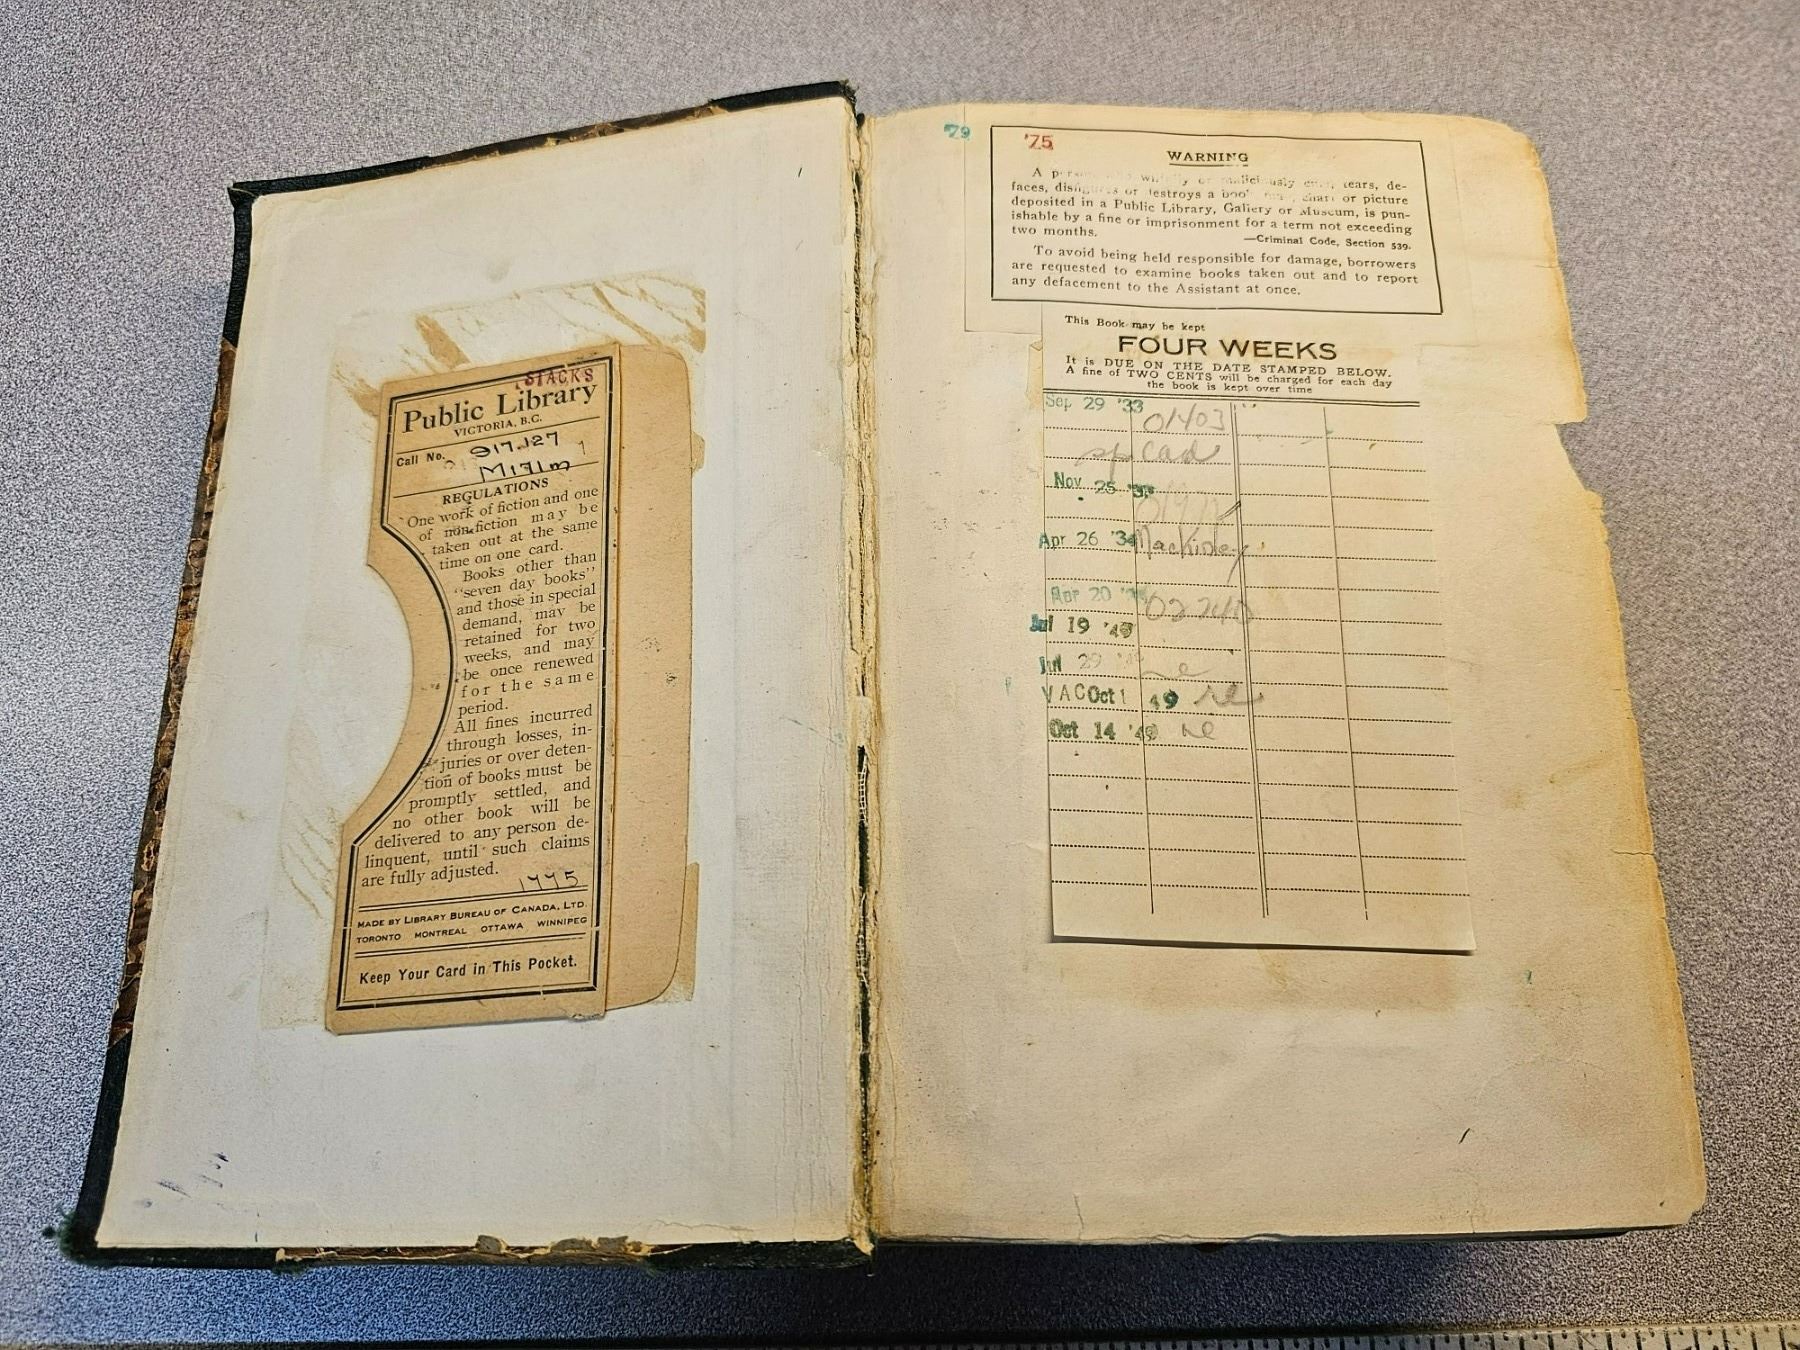 STACKS
Public Library
VICTORIA, B.C.
Call No. 917.127
M171m
REGULATIONS
One work of fiction and one
of non-fiction may be
taken out at the same
time on one card.
Books other than
"seven day books"
and those in special
demand, may be
retained for two
weeks, and may
be once renewed
for the same
period.
All fines incurred
through losses, in-
juries or over deten-
tion of books must be
promptly settled, and
no other book will be
delivered to any person de-
linquent, until such claims
are fully adjusted.
1775
MADE BY LIBRARY BUREAU OF CANADA, LTD.
TORONTO MONTREAL OTTAWA WINNIPEG
Keep Your Card in This Pocket.
'79
'75
WARNING
A person who wilfully or maliciously cuts, tears, de-
faces, disfigures or destroys a book, map, chart or picture
deposited in a Public Library, Gallery or Museum, is pun-
ishable by a fine or imprisonment for a term not exceeding
two months.
—Criminal Code, Section 539.
To avoid being held responsible for damage, borrowers
are requested to examine books taken out and to report
any defacement to the Assistant at once.
This Book may be kept
FOUR WEEKS
It is DUE ON THE DATE STAMPED BELOW.
A fine of TWO CENTS will be charged for each day
the book is kept over time
Sep 29 '33 01403
sp Card
Nov 25
Apr 26 '34
Apr 20
Jul 19 '49
Jul 29
VAC Oct 1 49 re
Oct 14 '49 re